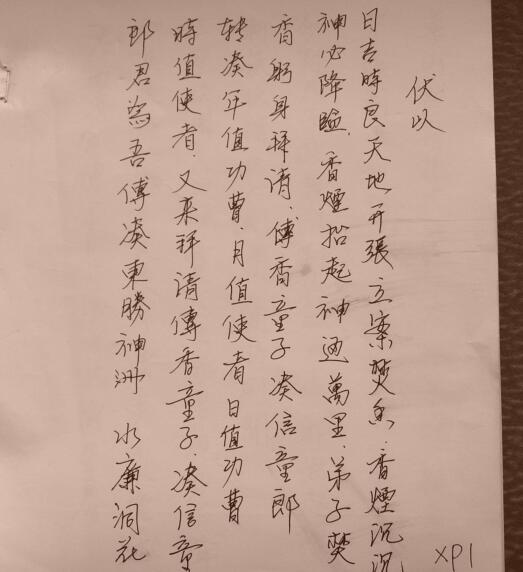 伏以
日吉時良天地开張立案焚香.香煙沉沉
神必降臨.香煙抬起神通萬里.弟子焚
香躬身拜请.傅香童子凑信童郎
转凑年值功曹.月值使者日值功曹
時值使者.又来拜请傅香童子.凑信童
郎君為吾傅凑東勝神洲 水廉洞花
XP1